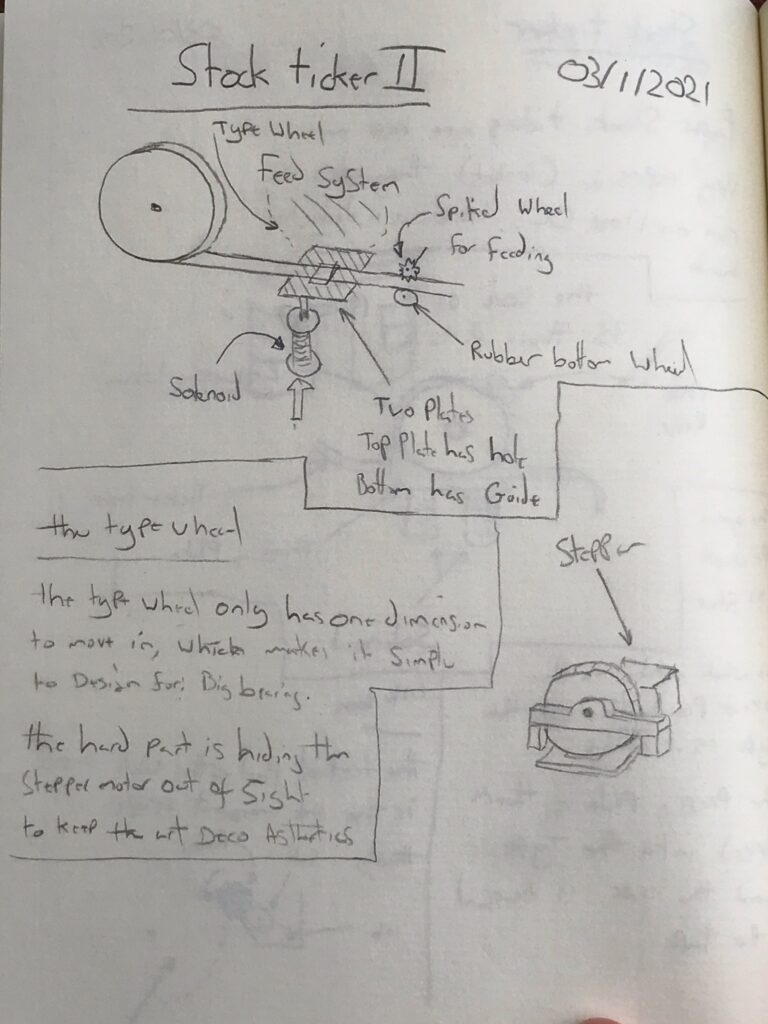 Stock ticker II
03/1/2021
Type Wheel
Feed System
Spiked Wheel
for feeding
Rubber bottom wheel
Solenoid
Two Plates
Top Plate has hole
Bottom has Guide
the type wheel
the type wheel only has one dimension
to move in, which makes it Simple
to Design for: Big bearing.
the hard part is hiding the
Stepper motor out of Sight
to keep the art Deco Asthetics
Stepper